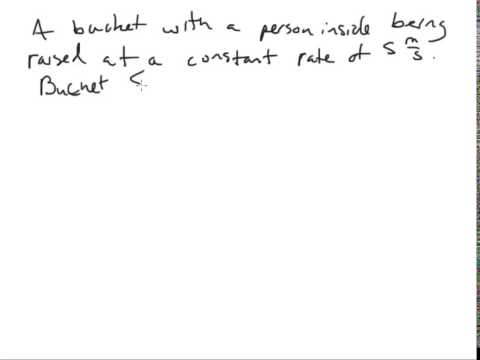 A bucket with a person inside being
raised at a constant rate of 5 m/s.
Bucket